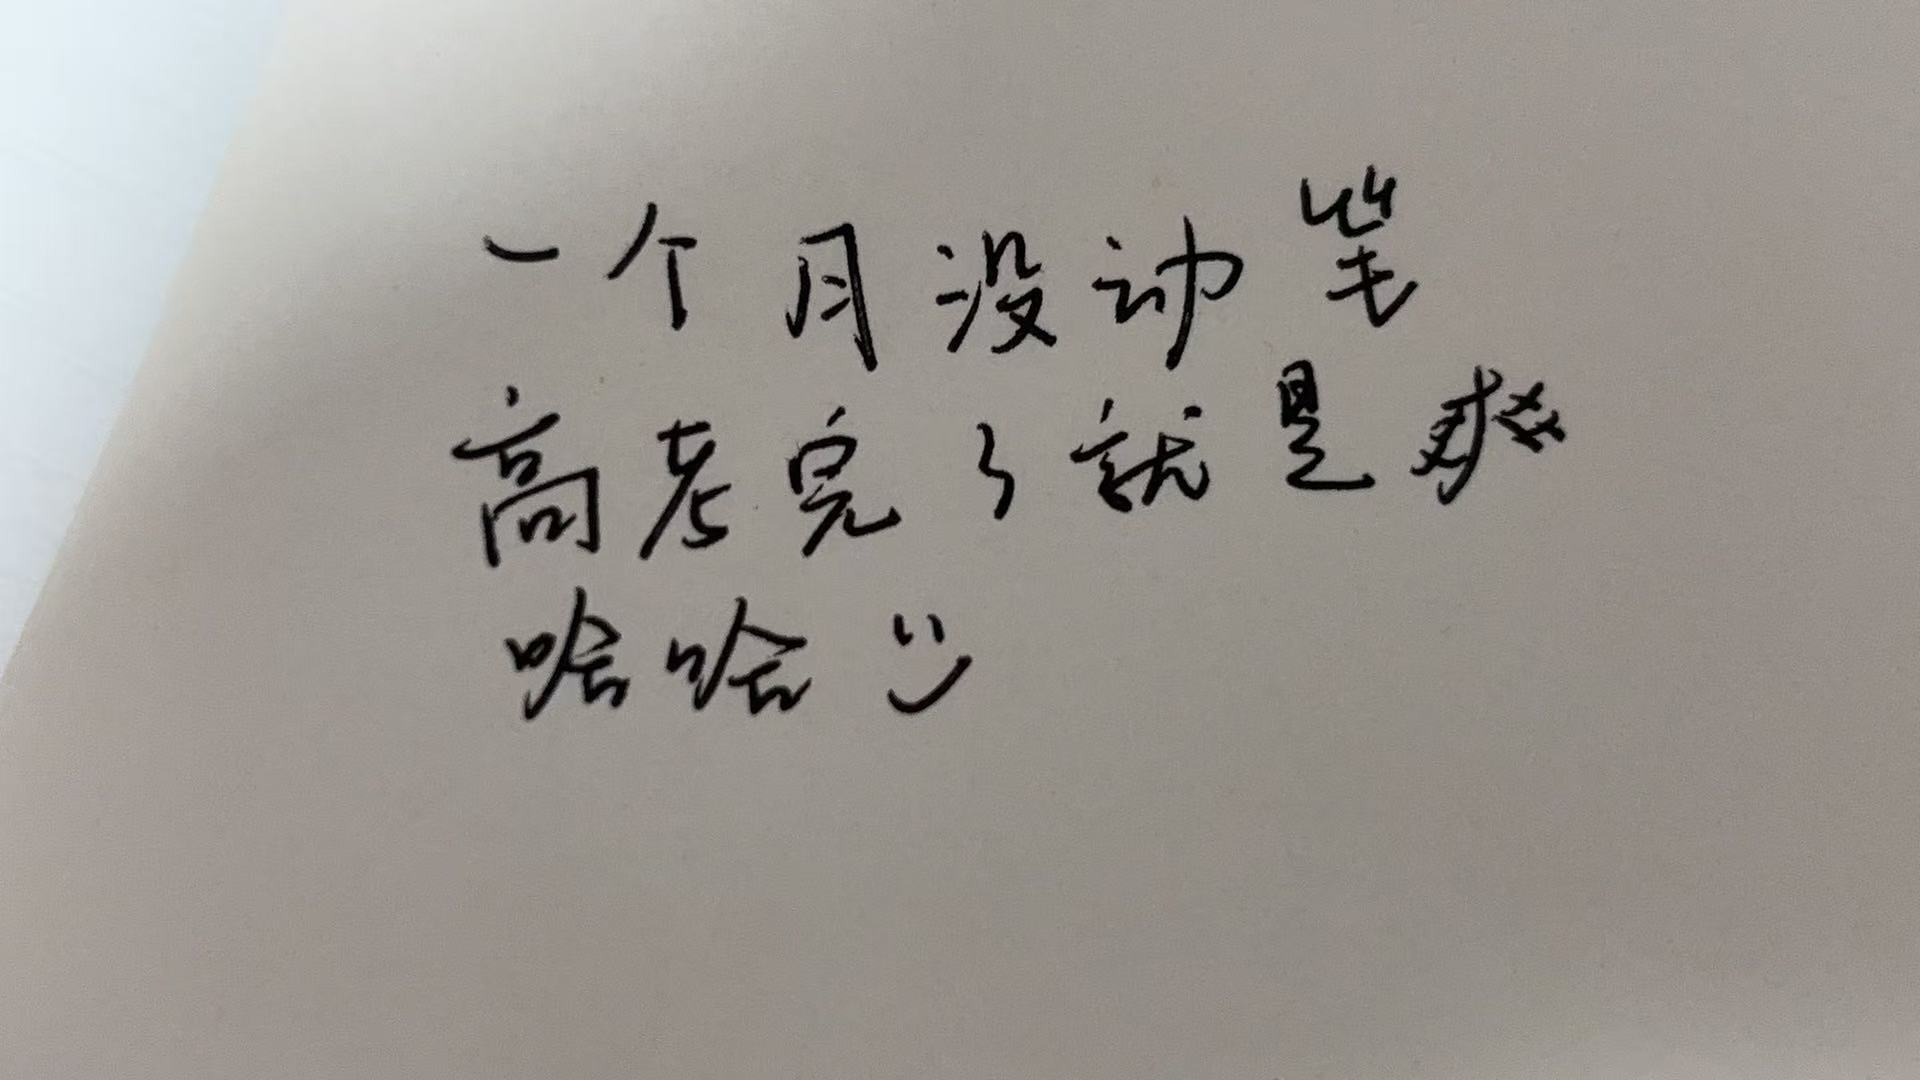 一个月没动笔
高考完了就是爽
哈哈